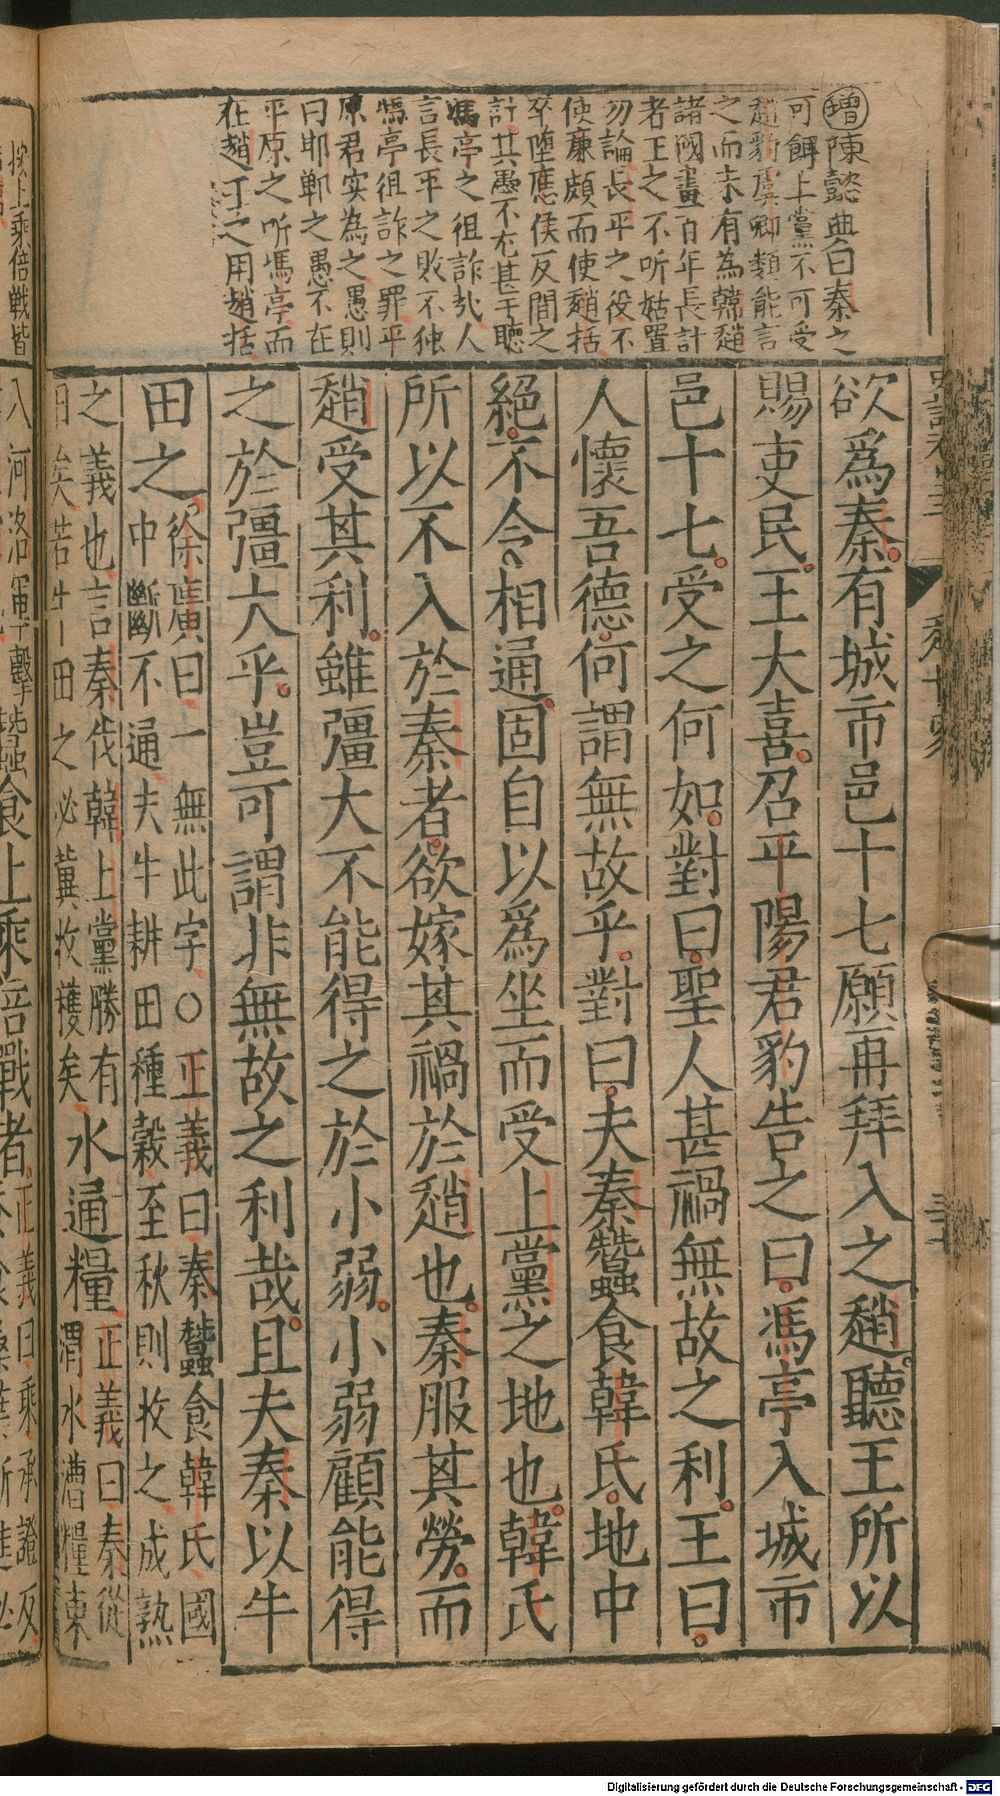 增陳懿典曰秦之
可餌上黨不可受
趙豹虞卿類能言
之而未有為韓趙
諸國畫百年長計
者王之不听姑置
勿論長平之役不
使廉頗而使趙括
卒墮應侯反間之
計其愚不尤甚于聽
馮亭之徂詐哉人
言長平之敗不独
馮亭徂詐之罪平
原君实為之愚則
曰邯鄲之愚不在
平原之听馮亭而
在趙王之用趙括
欲爲秦有城市邑十七願再拜入之趙聽王所以
賜吏民王大喜召平陽君豹告之曰馮亭入城市
邑十七受之何如對曰聖人甚禍無故之利王曰
人懷吾德何謂無故乎對曰夫秦蠶食韓氏地中
絕不令相通固自以爲坐而受上黨之地也韓氏
所以不入於秦者欲嫁其禍於趙也秦服其勞而
趙受其利雖彊大不能得之於小弱小弱顧能得
之於彊大乎豈可謂非無故之利哉且夫秦以牛
田之
徐廣曰一無此字○正義曰秦蠶食韓氏國
中斷不通夫牛耕田種穀至秋則收之成熟
之義也言秦伐韓上黨勝有
日矣若牛田之必冀收穫矣
水通糧
正義曰秦從
渭水漕糧東
入河洛軍擊
蠶食上乘倍戰者
正義曰乘承證反
按上乘倍戰皆
Digitalisierung gefördert durch die Deutsche Forschungsgemeinschaft - DFG